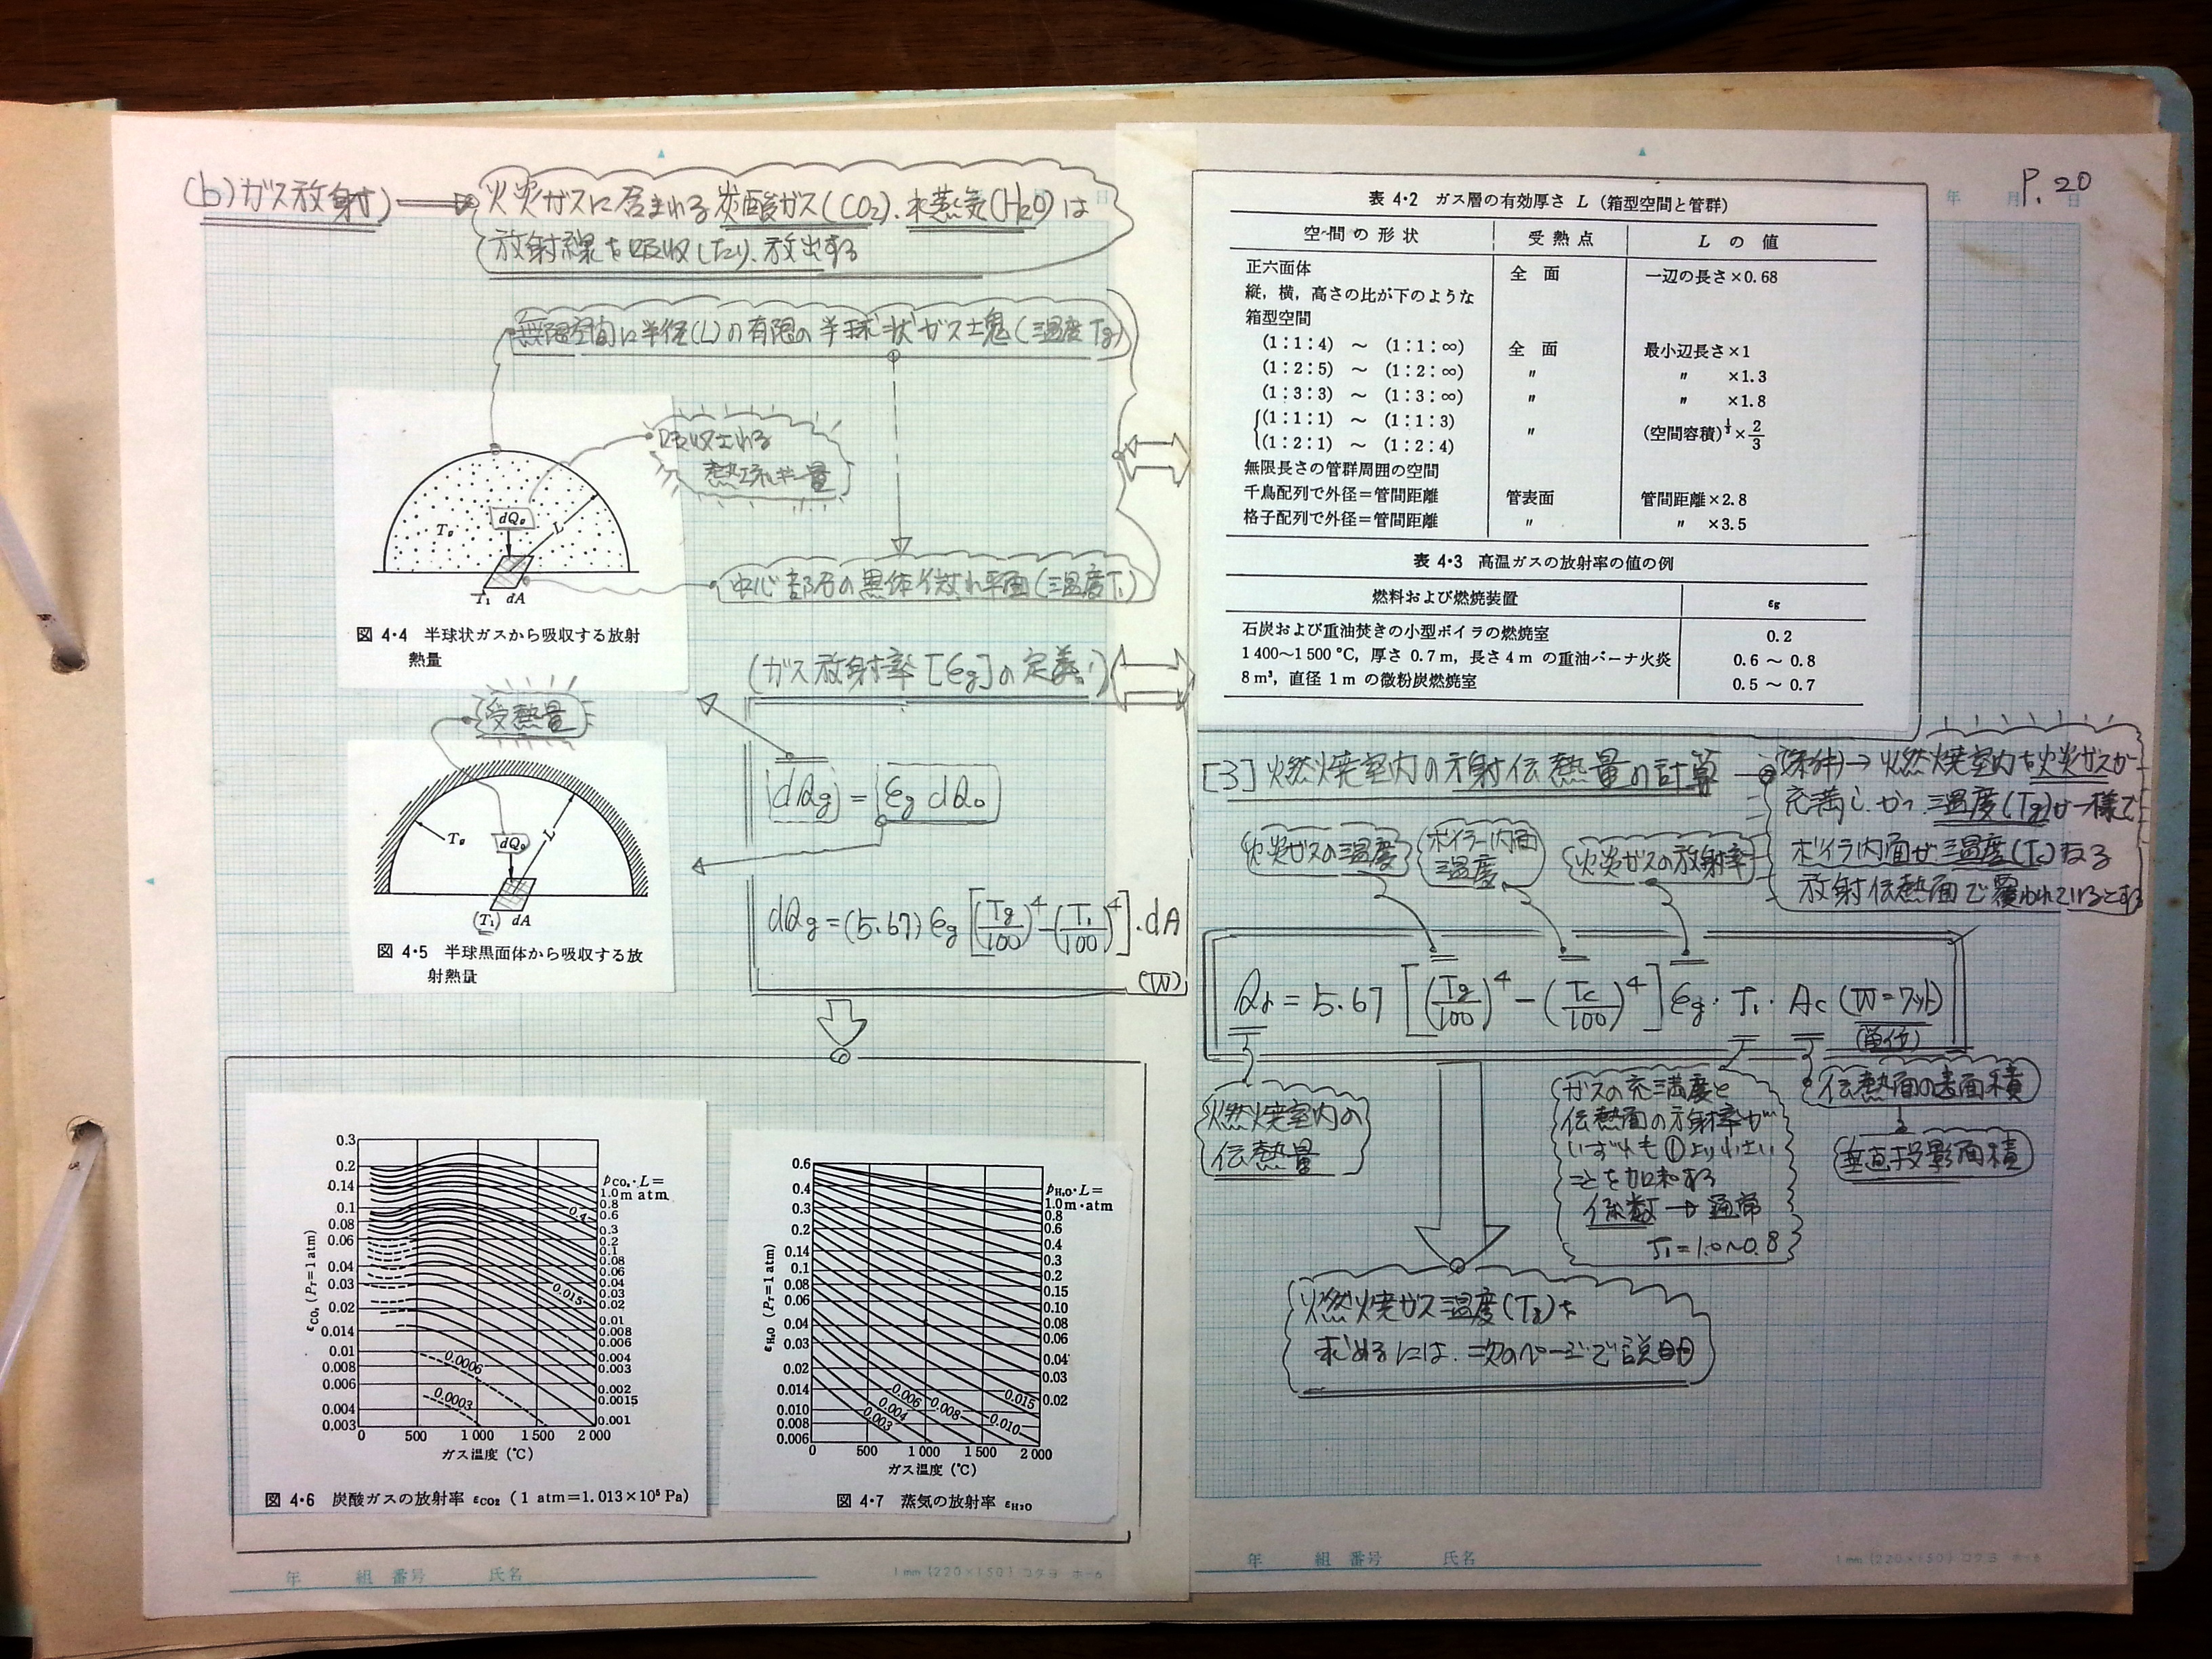 P. 20
(b) ガス放射)
火炎ガスに含まれる炭酸ガス(CO₂)、水蒸気(H₂O)は
放射線を吸収したり、放出する
無限空間に半径(L)の有限の半球状ガス塊(温度Tg)
吸収される
熱エネルギー量
dQg
Tg
L
T₁ dA
中心部石の黒体微小平面(温度T₁)
図 4・4 半球状ガスから吸収する放射
熱量
(ガス放射率[εg]の定義)
受熱量
dQg = εg dQ₀
Tg
L
(T₁) dA
図 4・5 半球黒面体から吸収する放
射熱量
dQg = (5.67) εg [(Tg/100)⁴ - (T₁/100)⁴]・dA
(W)
0.3
0.2
0.14
0.1
0.08
0.06
0.04
0.03
0.02
0.014
0.01
0.008
0.006
0.004
0.003
εCO₂ (PT=1 atm)
pCO₂・L=
1.0m atm
0.8
0.6
0.4
0.3
0.2
0.1
0.08
0.06
0.04
0.03
0.02
0.015
0.01
0.008
0.006
0.004
0.003
0.002
0.0015
0.001
0.0006
0.0003
0 500 1 000 1 500 2 000
ガス温度 (℃)
図 4・6 炭酸ガスの放射率 εCO₂ (1 atm=1.013×10⁵ Pa)
0.6
0.4
0.3
0.2
0.14
0.1
0.08
0.06
0.04
0.03
0.02
0.014
0.010
0.008
0.006
εH₂O (PT=1 atm)
pH₂O・L=
1.0m・atm
0.8
0.6
0.4
0.3
0.2
0.15
0.10
0.08
0.06
0.04
0.03
0.02
0.015
0.010
0.008
0.006
0.004
0.003
0 500 1 000 1 500 2 000
ガス温度 (℃)
図 4・7 蒸気の放射率 εH₂O
年 組 番号 氏名
1mm (220×150) コクヨ ホー6
年 月 日
表 4・2 ガス層の有効厚さ L (箱型空間と管群)
空間の形状 受熱点 L の値
正六面体 全面 一辺の長さ×0.68
縦，横，高さの比が下のような
箱型空間
(1:1:4) ～ (1:1:∞) 全面 最小辺長さ×1
(1:2:5) ～ (1:2:∞) 〃 〃 ×1.3
(1:3:3) ～ (1:3:∞) 〃 〃 ×1.8
(1:1:1) ～ (1:1:3)
(1:2:1) ～ (1:2:4) 〃 (空間容積)^1/3×2/3
無限長さの管群周囲の空間
千鳥配列で外径＝管間距離 管表面 管間距離×2.8
格子配列で外径＝管間距離 〃 〃 ×3.5
表 4・3 高温ガスの放射率の値の例
燃料および燃焼装置 εg
石炭および重油焚きの小型ボイラの燃焼室 0.2
1 400～1 500 ℃，厚さ 0.7 m，長さ 4 m の重油バーナ火炎 0.6 ～ 0.8
8 m³，直径 1 m の微粉炭燃焼室 0.5 ～ 0.7
[3] 燃焼室内の放射伝熱量の計算
(条件)→ 燃焼室内を火炎ガスが
充満し、かつ、温度(Tg)が一様で
ボイラ内面が温度(Tc)なる
放射伝熱面で覆われているとする
火炎ガスの温度
ボイラー内面
温度
火炎ガスの放射率
Qr = 5.67 [(Tg/100)⁴ - (Tc/100)⁴] εg・J₁・Ac (W=ワット)
(単位)
燃焼室内の
伝熱量
ガスの充満度と
伝熱面の放射率が
いずれも①より小さい
ことを加味する
係数 → 通常
J₁=1.0～0.8
伝熱面の表面積
垂直投影面積
燃焼ガス温度(Tg)を
求めるには、次のページで説明
年 組 番号 氏名
1mm (220×150) コクヨ ホー6